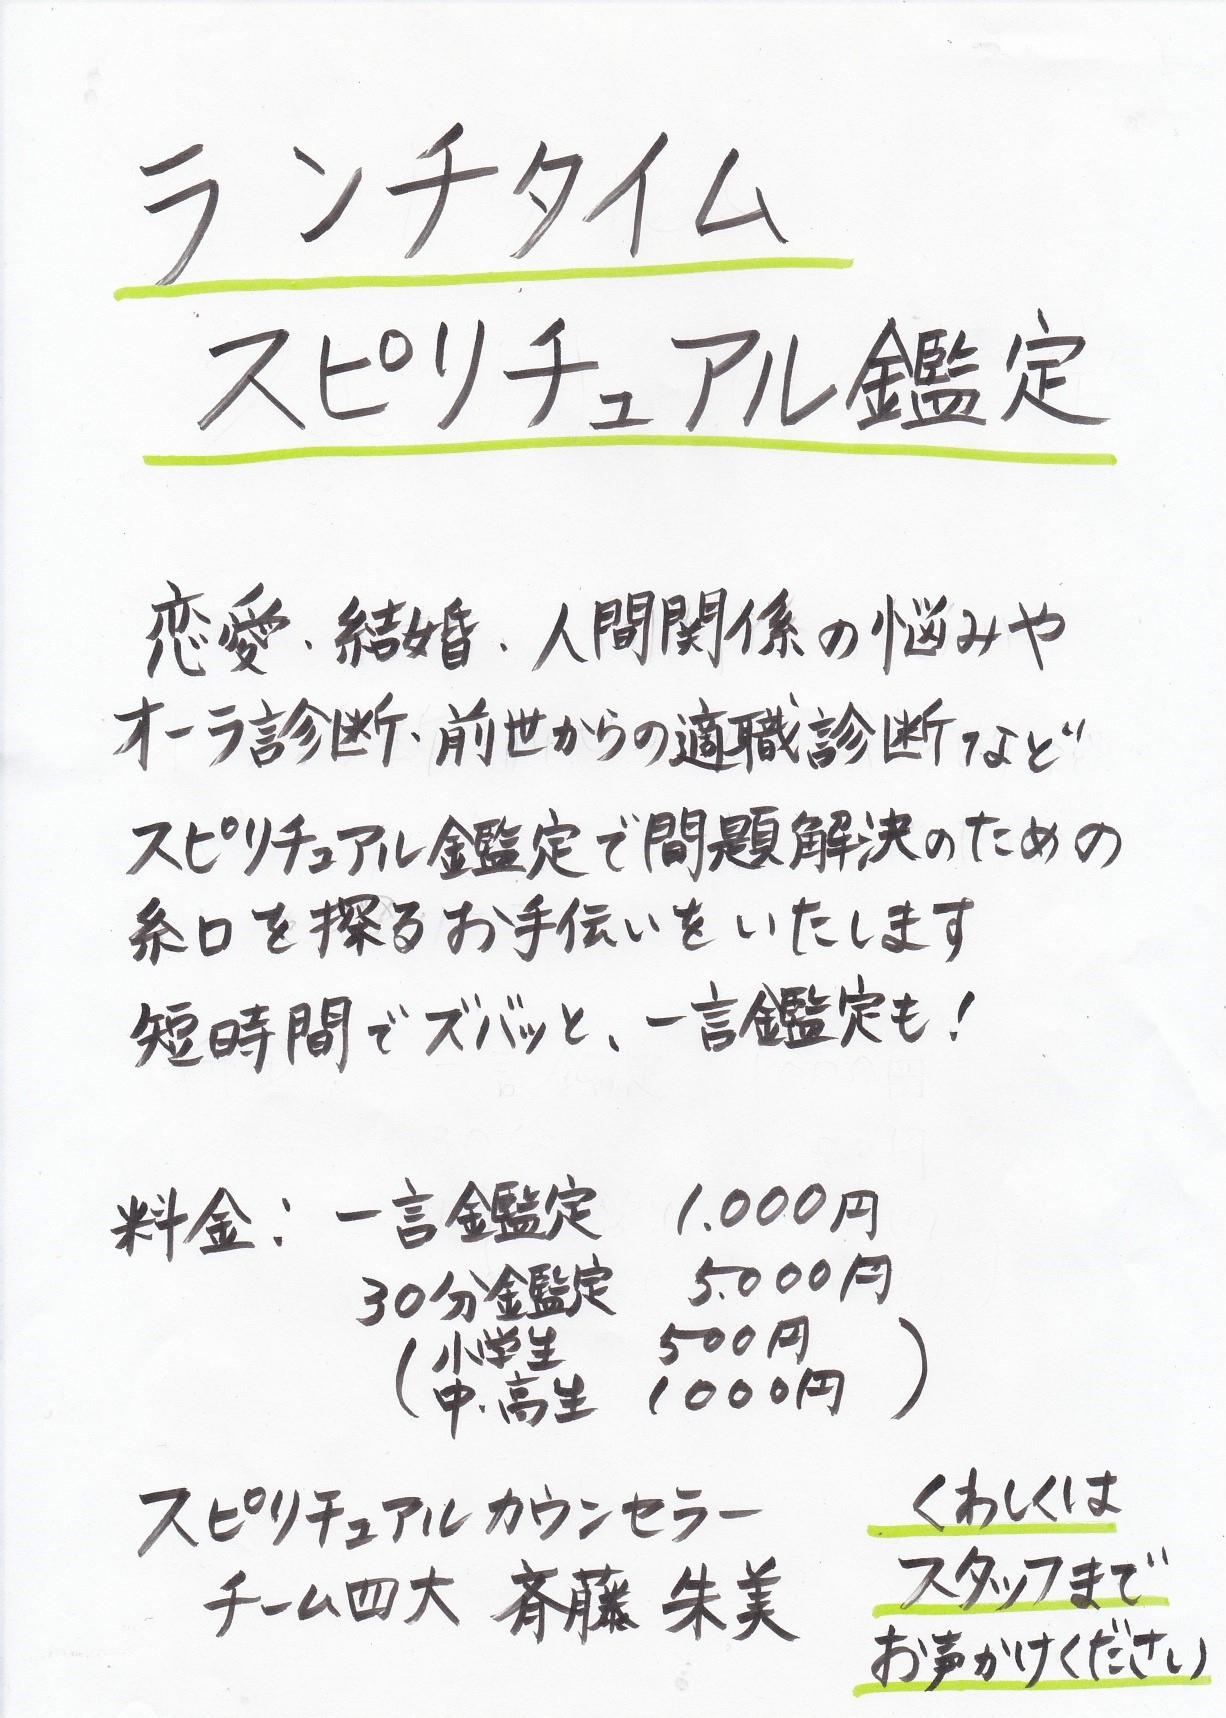 ランチタイム
スピリチュアル鑑定
恋愛・結婚・人間関係の悩みや
オーラ診断・前世からの適職診断など
スピリチュアル鑑定で問題解決のための
糸口を探るお手伝いをいたします
短時間でズバッと、一言鑑定も!
料金: 一言鑑定 1.000円
30分鑑定 5.000円
(小学生 500円
中・高生 1000円)
スピリチュアルカウンセラー
チーム四大 斉藤 朱美
くわしくは
スタッフまで
お声かけください